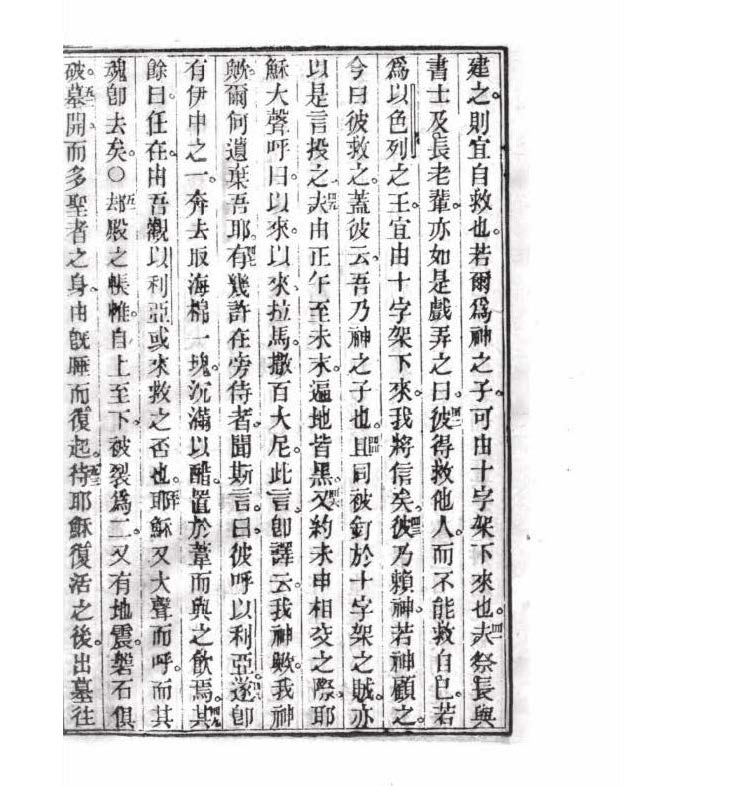 建之則宜自救也。若爾爲神之子。可由十字架下來也。夫祭長與
書士及長老輩。亦如是戲弄之曰。彼得救他人。而不能救自己。若
爲以色列之王。宜由十字架下來。我將信矣。彼乃賴神。若神顧之。
今曰彼救之。蓋彼云。吾乃神之子也。且同被釘於十字架之賊。亦
以是言投之。夫由正午至未末。遍地皆黑。又約未申相交之際。耶
穌大聲呼曰。以來以來。拉馬撒百大尼。此言卽譯云。我神歟。我神
歟。爾何遺棄吾耶。有幾許在旁侍者。聞斯言。曰彼呼以利亞。遂卽
有伊中之一。奔去取海棉一塊。沉滿以醋。置於葦而與之飲焉。其
餘曰。任在由吾觀以利亞或來救之否也。耶穌又大聲而呼。而其
魂卽去矣。○却殿之帳帷。自上至下。被裂爲二。又有地震。磐石俱
破。墓開。而多聖者之身。由旣睡而復起。待耶穌復活之後。出墓往